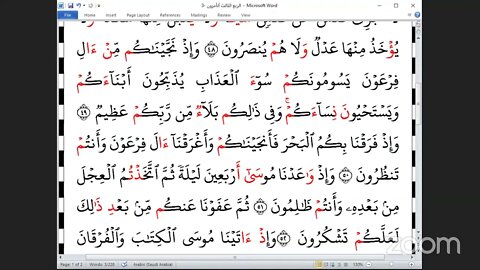 الربع الثالث - Microsoft Word
Home Insert Page Layout References Mailings Review View
يُؤۡخَذُ مِنۡهَا عَدۡلٞ وَلَا هُمۡ يُنصَرُونَ ٤٨ وَإِذۡ نَجَّيۡنَٰكُم مِّنۡ ءَالِ
فِرۡعَوۡنَ يَسُومُونَكُمۡ سُوٓءَ ٱلۡعَذَابِ يُذَبِّحُونَ أَبۡنَآءَكُمۡ
وَيَسۡتَحۡيُونَ نِسَآءَكُمۡۚ وَفِي ذَٰلِكُم بَلَآءٞ مِّن رَّبِّكُمۡ عَظِيمٞ ٤٩
وَإِذۡ فَرَقۡنَا بِكُمُ ٱلۡبَحۡرَ فَأَنجَيۡنَٰكُمۡ وَأَغۡرَقۡنَآ ءَالَ فِرۡعَوۡنَ وَأَنتُمۡ
تَنظُرُونَ ٥٠ وَإِذۡ وَٰعَدۡنَا مُوسَىٰٓ أَرۡبَعِينَ لَيۡلَةٗ ثُمَّ ٱتَّخَذۡتُمُ ٱلۡعِجۡلَ
مِنۢ بَعۡدِهِۦ وَأَنتُمۡ ظَٰلِمُونَ ٥١ ثُمَّ عَفَوۡنَا عَنكُم مِّنۢ بَعۡدِ ذَٰلِكَ
لَعَلَّكُمۡ تَشۡكُرُونَ ٥٢ وَإِذۡ ءَاتَيۡنَا مُوسَى ٱلۡكِتَٰبَ وَٱلۡفُرۡقَانَ
zoom
Page: 1 of 2 Words: 3/226 Arabic (Saudi Arabia) 130%